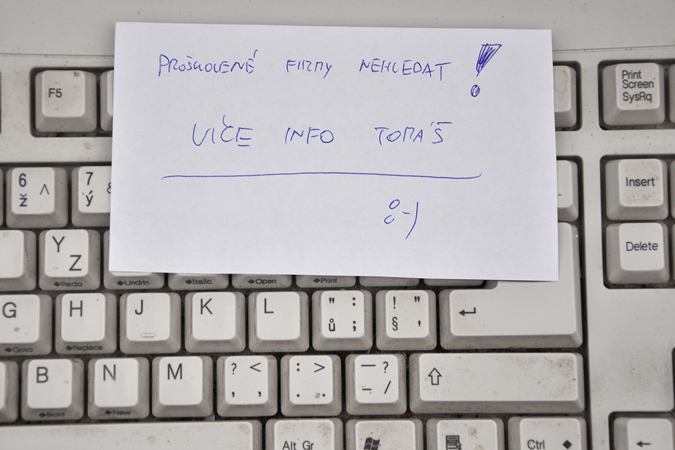 PROŠKOLENÉ FIRMY NEHLEDAT!
VÍCE INFO TOMÁŠ
:-)
F5
Print Screen SysRq
6 ^ ž
7 ý
Insert
Y Z
Delete
Redo
Undrln
Italic
Open
Print
G
H
J
K
L
" : ů ;
! " § '
Goto
Replace
B
N
M
? < , ,
: > . .
— ? – /
Bold
New
Alt Gr
Ctrl